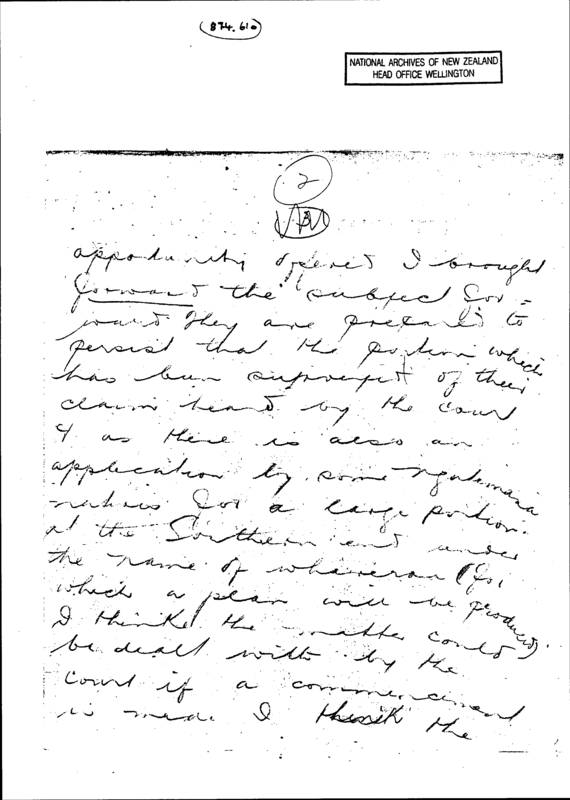 874.610
NATIONAL ARCHIVES OF NEW ZEALAND
HEAD OFFICE WELLINGTON
2
opportunity offered I brought
forward the subject for=
ward They are prepared to
persist that the portion which
has been of their
claim heard by the Court
& as there is also an
application by some Ngatimaia
natives for a large portion
at the Southern end under
the name of (for
which a plan will be produced)
I think the matter could
be dealt with by the
Court if a commencement
is made. I think the